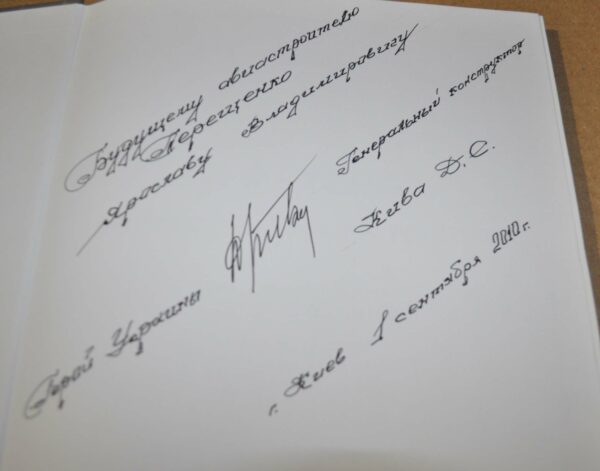 Будущему авиастроителю
Терещенко
Ярославу Владимировичу
Генеральный конструктор
Герой Украины
Кива Д. С.
г. Киев 1 сентября 2010 г.